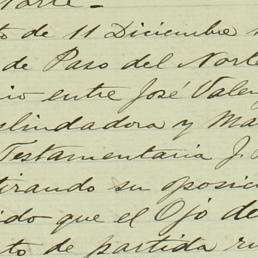 Norte. -
to de 11 Diciembre
de Paso del Norte
io entre José Valen
slindadora y Ma
Testamentaria J.
tirando su oposic
ido que el Ojo de
to de partida ru